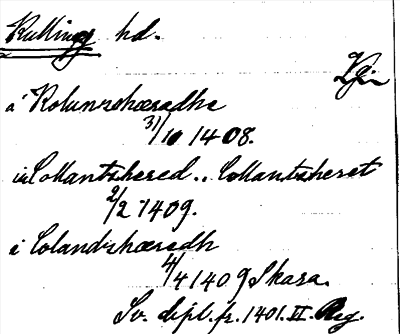 Kullings hd.
Vgr
a' Kolunzhæradhe
31/10 1408.
in Collantshered .. Collantsheret
2/2 1409.
i Colandzhæradh
4/4 1409 Skara.
Sv. dipl. fr. 1401. II. Reg.